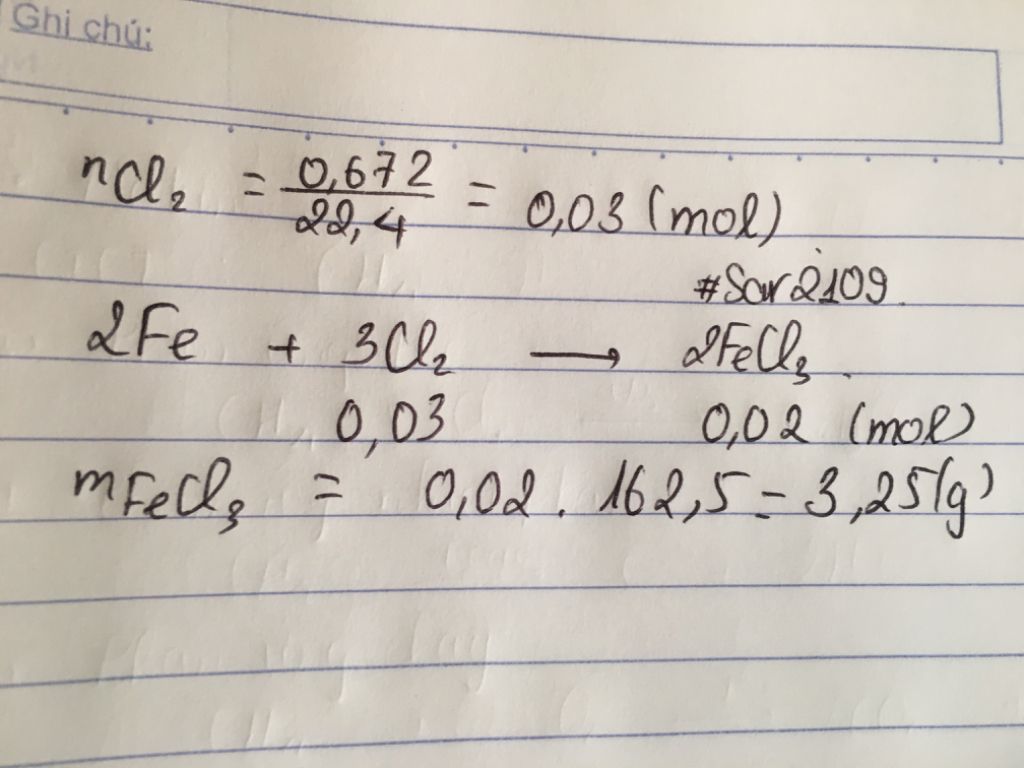 Ghi chú:
nCl₂ = 0,672/22,4 = 0,03 (mol)
#Sar2109
2Fe + 3Cl₂ ⟶ 2FeCl₃
0,03 0,02 (mol)
mFeCl₃ = 0,02 . 162,5 = 3,25(g)